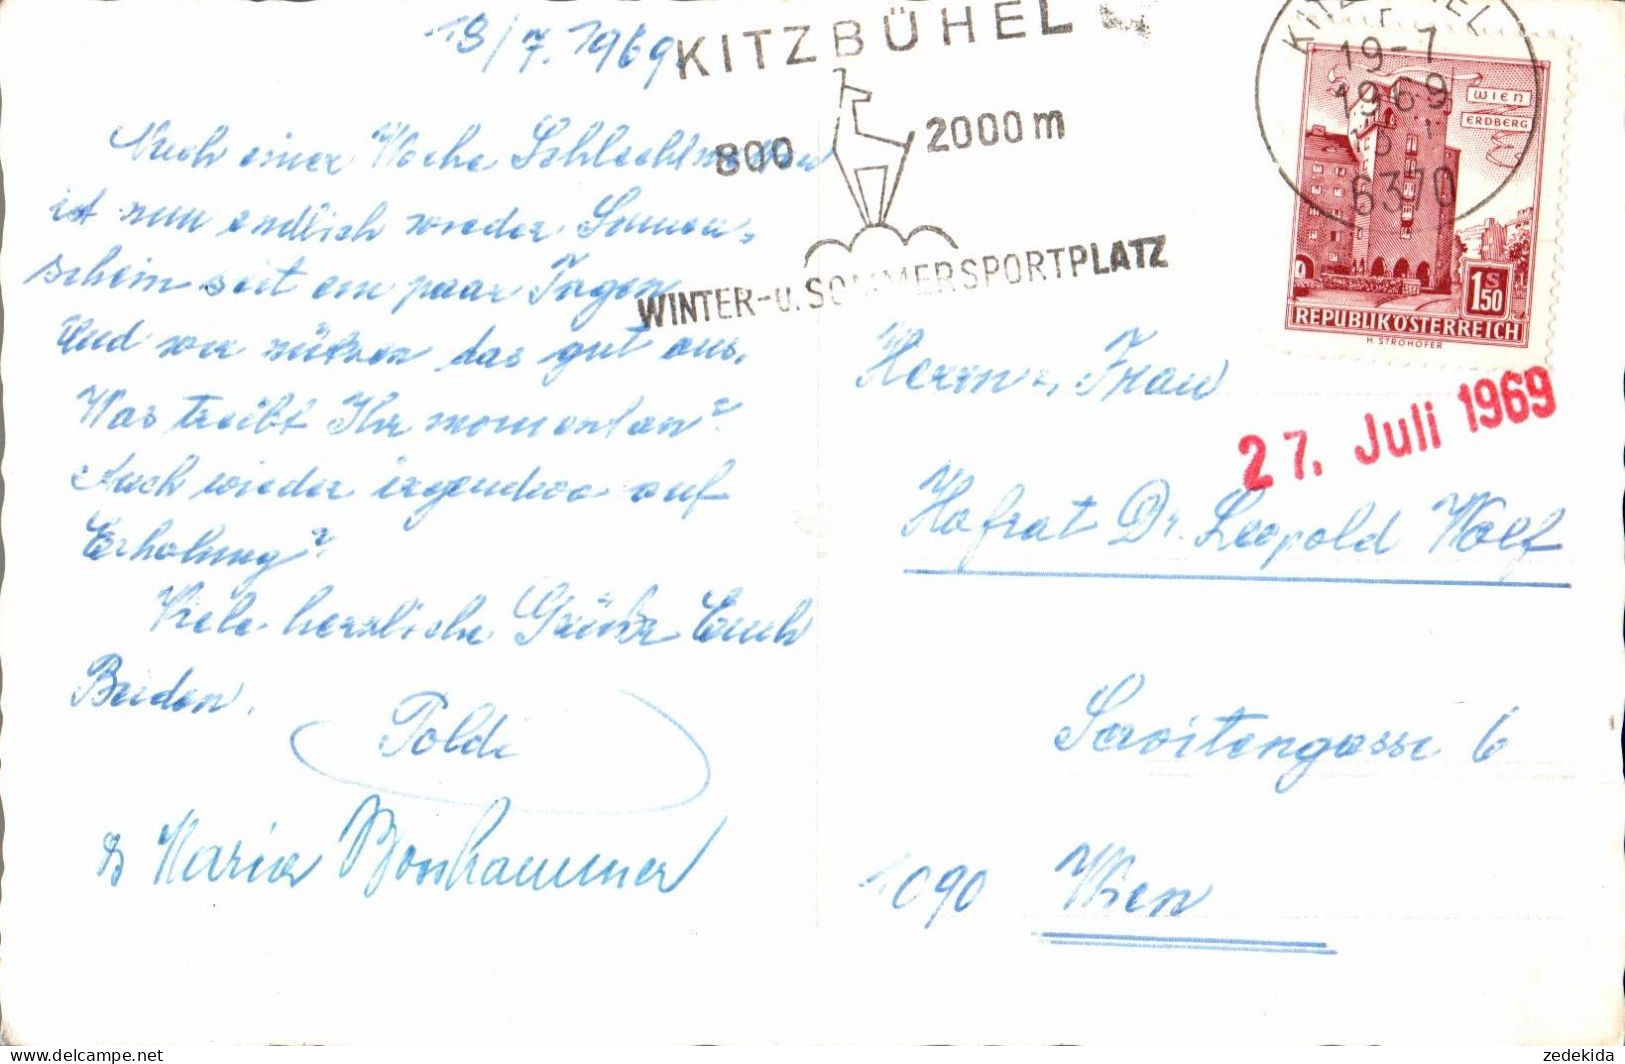 18/7. 1969.
Nach einer Woche Schlechtwetter
ist nun endlich wieder Sonnen-
schein seit ein paar Tagen
Und wir nützen das gut aus.
Was treibt Ihr momentan?
Auch wieder irgendwo auf
Erholung?
Viele herzliche Grüße Euch
Beiden.
Poldi
& Maria
KITZBÜHEL
800 2000 m
WINTER-u. SOMMERSPORTPLATZ
KITZBÜHEL
19-7
1969
6370
WIEN
ERDBERG
1.50 S
REPUBLIK ÖSTERREICH
H. STROHOFER
27. Juli 1969
Herrn u. Frau
Hofrat Dr. Leopold Wolf
Servitengasse 6
1090 Wien
zedekida